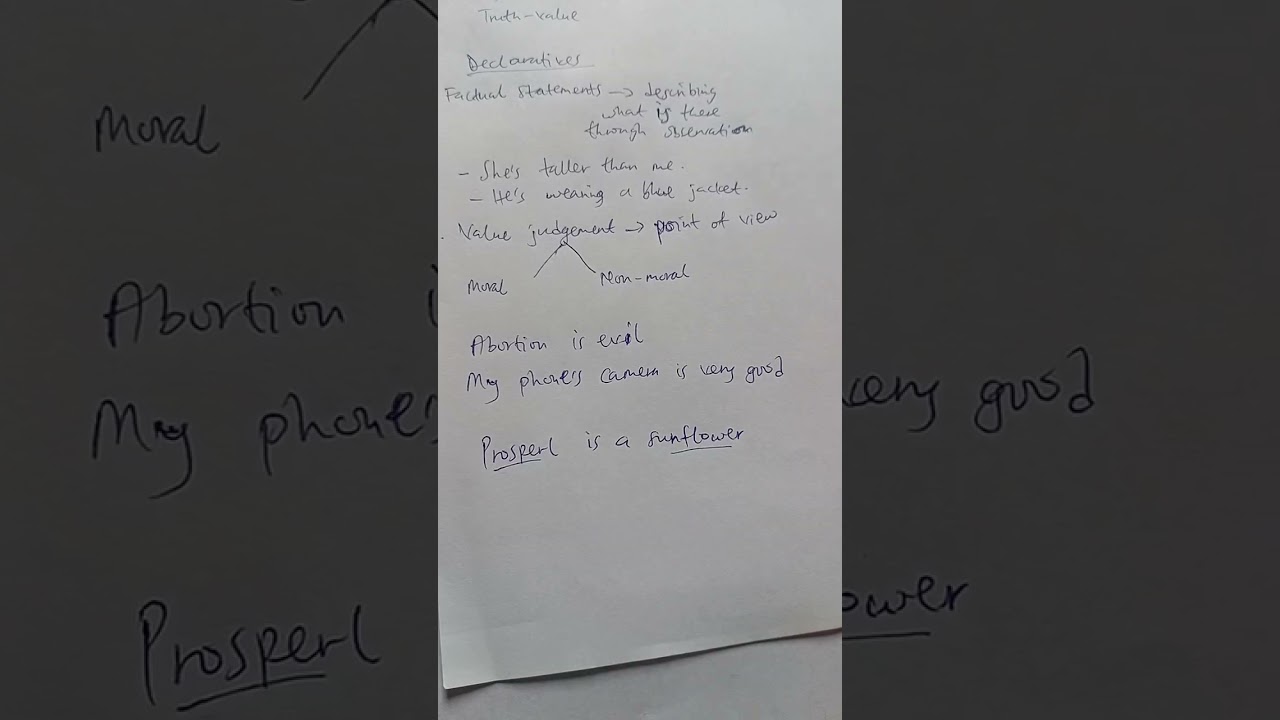 Truth-value
Declaratives
Factual statements → describing
what is there
through observation
- She's taller than me.
- He's wearing a blue jacket.
. Value judgement → point of view
Moral
Non-moral
Abortion is evil
My phone's camera is very good
Prosperl is a sunflower